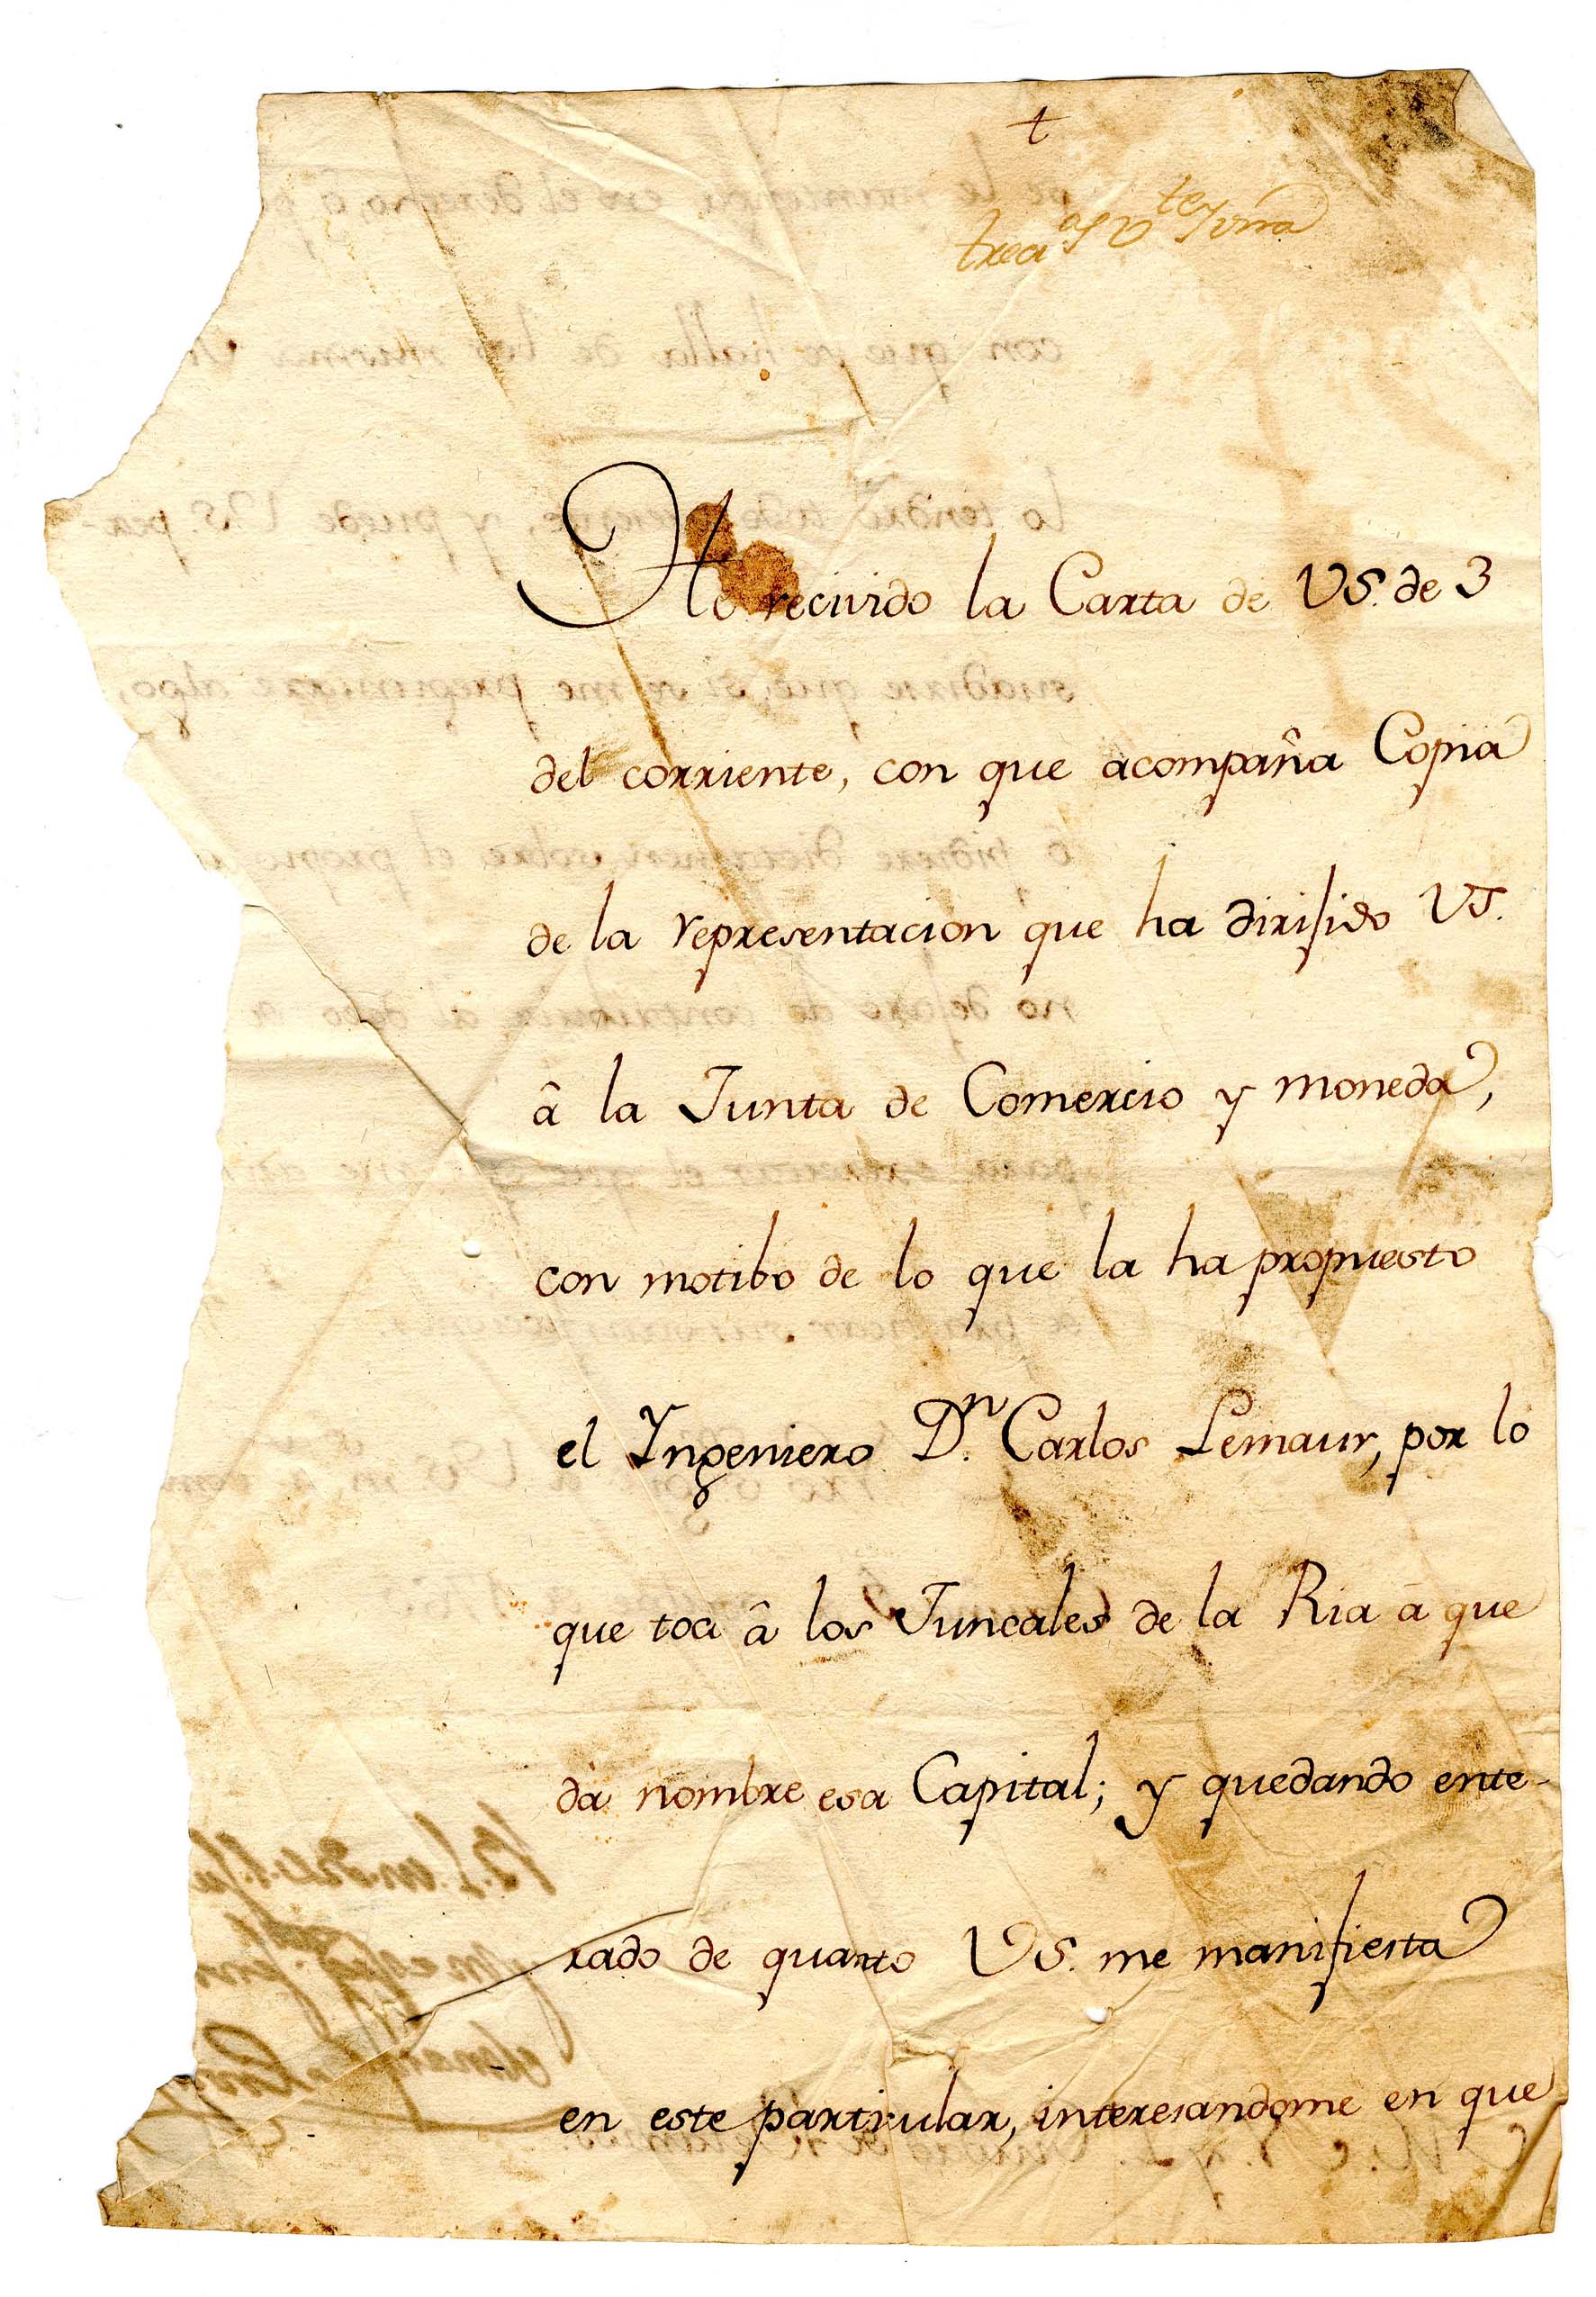 t
He recivido la Carta de VS. de 3
del corriente, con que acompaña Copia
de la representacion que ha dirijido VS.
â la Junta de Comercio y moneda,
con motibo de lo que la ha propuesto
el Yngeniero Dn. Carlos Lemaur, por lo
que toca â los Juncales de la Ria â que
dà nombre esa Capital; y quedando ente-
rado de quanto VS. me manifiesta
en este particular, interesandome en que